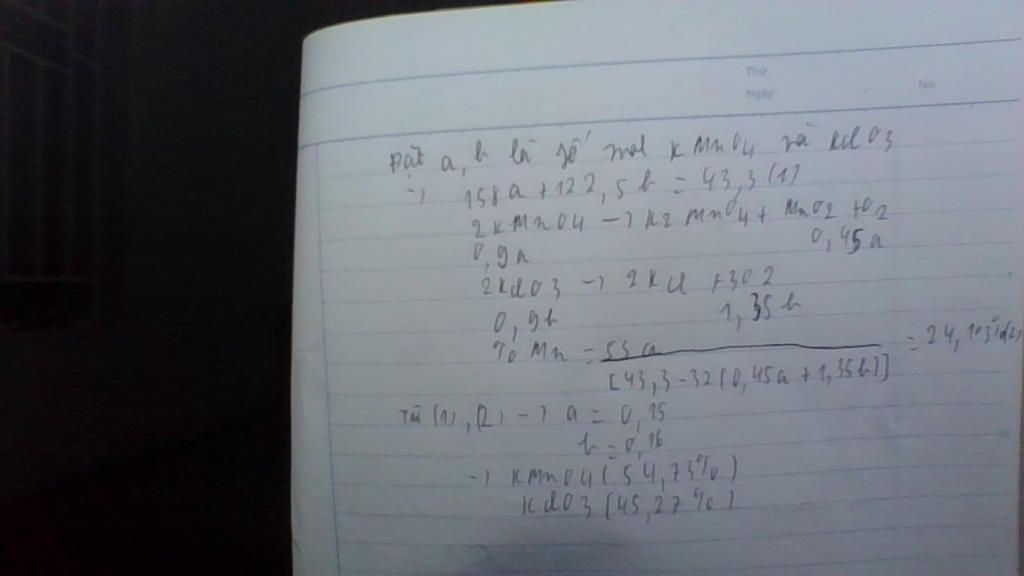 Thứ
Ngày No
Đặt a, b là số mol KMnO4 và KClO3
-> 158a + 122,5b = 43,3 (1)
2KMnO4 -> K2MnO4 + MnO2 + O2
0,9a 0,45a
2KClO3 -> 2KCl + 3O2
0,9b 1,35b
% Mn = 55a / [43,3 - 32(0,45a + 1,35b)] = 24,103% (2)
Từ (1), (2) -> a = 0,15
b = 0,16
-> KMnO4 (54,73%)
KClO3 (45,27%)